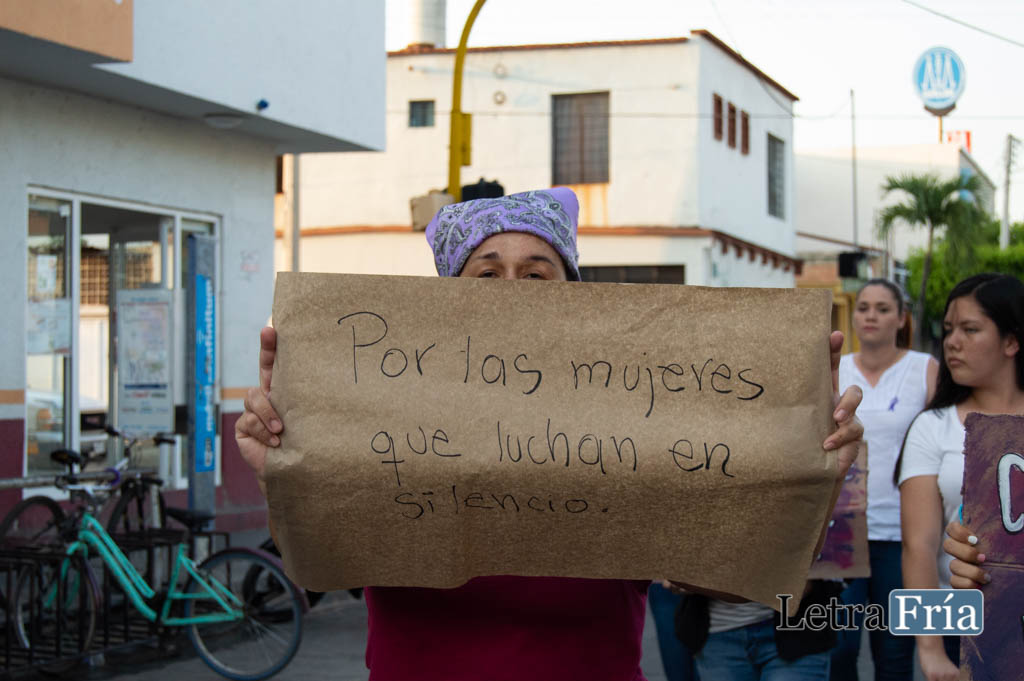 Por las mujeres
que luchan en
silencio.
LetraFría
C